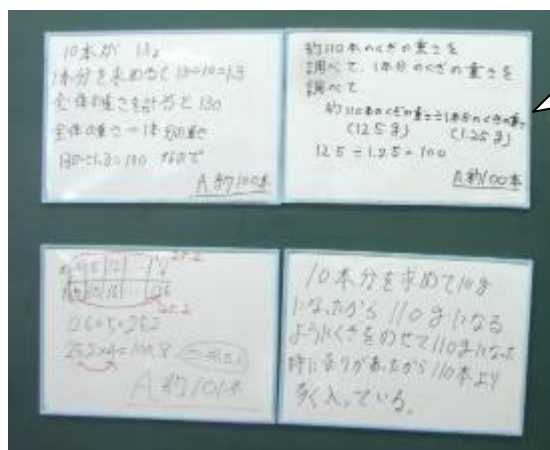 10本が 13g
1本分を求めると13÷10=1.3
全体の重さを計ると130
全体の重さ÷1本分の重さ
130÷1.3=100 なので
A 約100本
約110本のくぎの重さを
調べて、1本分のくぎの重さを
調べて
約110本のくぎの重さ÷1本分のくぎの重さ
(125g) (1.25g)
125÷1.25=100
A約100本
126÷5=25.2
25.2×4=100.8
A 約101本
10本分を求めて10g
になったから110gになる
ようにくぎをのせて110gになった
時に余りがあったから110本より
多く入っている。